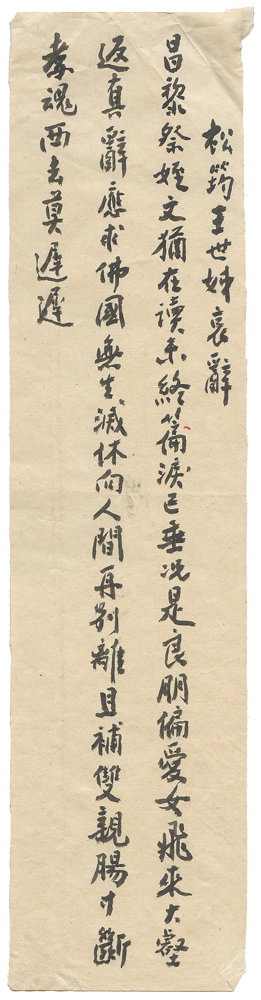 松筠王世姊哀辭
昌黎祭姪文猶在讀未終篇淚已垂況是良朋偏愛女飛來大壑
返真辭應求佛國無生滅休向人間再別離且補雙親腸寸斷
孝魂西去莫遲遲